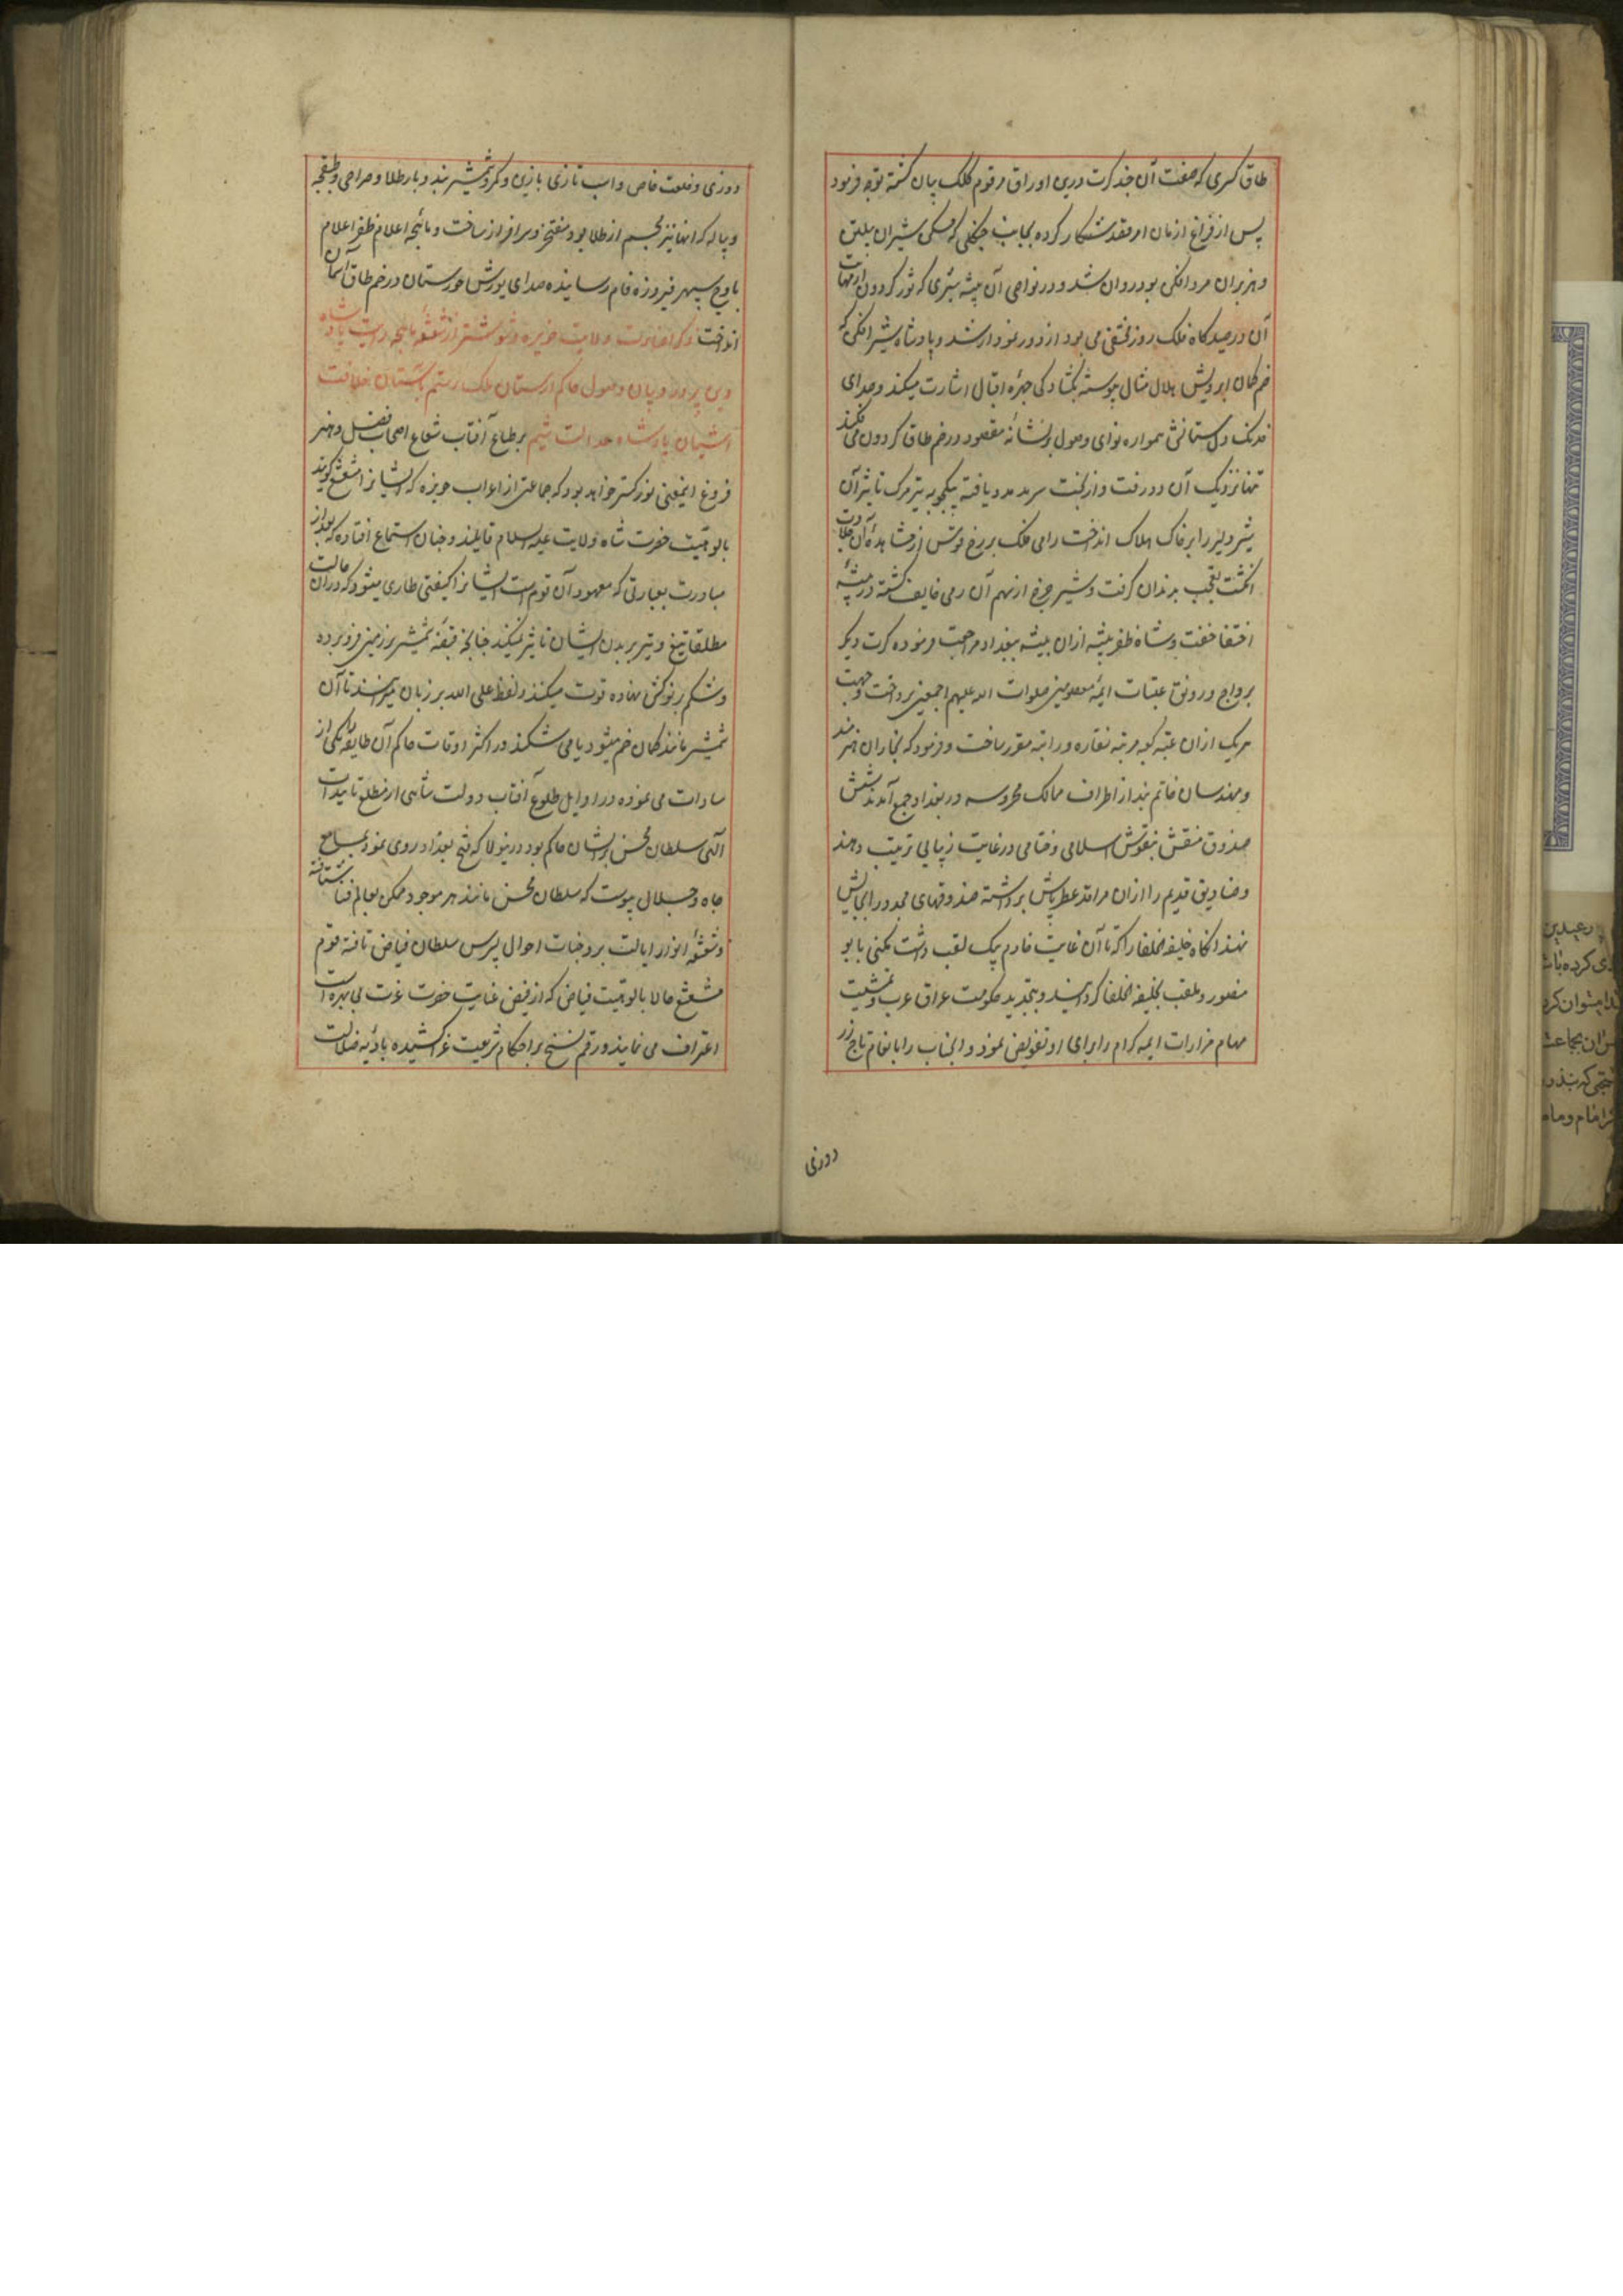 طاق کسری که صفت آن چند کرت درین اوراق مرقوم کلک بیان گشته توجه فرمود
پس از فراغ از مان امر مقدمشکار کرده بجانب جنگلی که مسکن شیران بیلتن
و هزبران مرد افکن بود روان شد و در نواحی آن بیشه شیری که ثور گردون از مهابت
آن در صیدگاه فلک روز مختفی می بود از دور نمودار شد و پادشاه شیر افکن که
خم کمان ابرویش هلال مثال پیوسته بگشادگی چهره اقبال اشارت میکند و صدای
خدنک دلستانش همواره نوای وصول بنشانه مقصود در خم طاق گردون می فکند
تنها نزدیک آن دد رفت و از بخت سرمد مدد یافته بیکچوبه تیر مرک تاثیر آن
شیر دلیر را بر خاک هلاک انداخت رامی فلک بر برج قوس از مشاهده آن جلادت
انگشت تعجب بدندان گرفت و شیر چرخ از سهم آن رمی خایف گشته در بیشه
اختفا خفت و شاه ظفر پیشه از ان بیشه ببغداد مراجعت فرموده کرت دیگر
برواج و رونق عتبات ایمه معصومین صلوات الله علیهم اجمعین پرداخت و جهت
هریک از ان عتبه کعبه مرتبه نقاره و راتبه مقرر ساخت و فرمود که نجاران هنرمند
و مهندسان خاتم بند از اطراف ممالک محروسه در بغداد جمع آمدند شش
صندوق منقش بنقوش اسلامی و ختایی در غایت زیبایی ترتیب دهند
و صنادیق قدیم را از ان مراقد عطر پاش برداشته صندوقهای مجدد را بجایش
نهند انگاه خلیفه الخلفا را که تا آن غایت خادم بیک لقب داشت مکنی بابو
منصور و ملقب بخلیفه الخلفا گردانید و بتجدید حکومت عراق عرب و تمشیت
مهام مزارات ایمه کرام را برای او تفویض نمود و انجناب را بانعام تاج زر
دوزی
دوزی و خلعت خاص و اسب تازی با زین و کمر شمشیر بند و بار طلا و صراحی و طبقچه
و پیاله که انها نیز مجسم از طلا بود مفتخر و سرافراز ساخت و ماهچه اعلام ظفر اعلام
باوج سپهر فیروزه فام رسانیده صدای یورش خوزستان در خم طاق آسمان
انداخت ذکر اضاءت ولایت حویزه و شوشتر از شعشعه ماهچه رایت پادشاه
دین پرور و بیان وصول حاکم لرستان ملک رستم بآستان خلافت
آشیان پادشاه عدالت شیم بر طباع آفتاب شعاع اصحاب فضل و هنر
فروغ اینمعنی نور گستر خواهد بود که جماعتی از اعراب حویزه که ایشانرا مشعشع گویند
بالوهیت حضرت شاه ولایت علیه السلام قایلند و چنان استماع افتاده که بعد از
مبادرت بعبارتی که معهود آن قوم است ایشانرا کیفیتی طاری میشود که در ان حالت
مطلقا تیغ و تیر بر بدن ایشان تاثیر نمیکند چنانچه قبضه شمشیر بزمین فرو برده
و شکم بر نوکش نهاده قوت میکنند و لفظ علی الله بر زبان میرانند تا آن
شمشیر مانند کمان خم میشود یا می شکند و در اکثر اوقات حاکم آن طایفه یکی از
سادات می بوده در اوایل طلوع آفتاب دولت شاهی از مطلع تاییدات
الهی سلطان محسن بر ایشان حاکم بود درینولا که فتح بغداد روی نمود بمسامع
جاه و جلال پیوست که سلطان محسن مانند هر موجود ممکن بعالم فنا شتافته
و شعشعه انوار ایالت بر وجنات احوال پسرش سلطان فیاض تافته قوم
مشعشع حالا بالوهیت فیاض که از فیض عنایت حضرت عزت بی بهره است
اعتراف می نمایند و رقم نسخ بر احکام شریعت غرا کشیده بادیه ضلالت